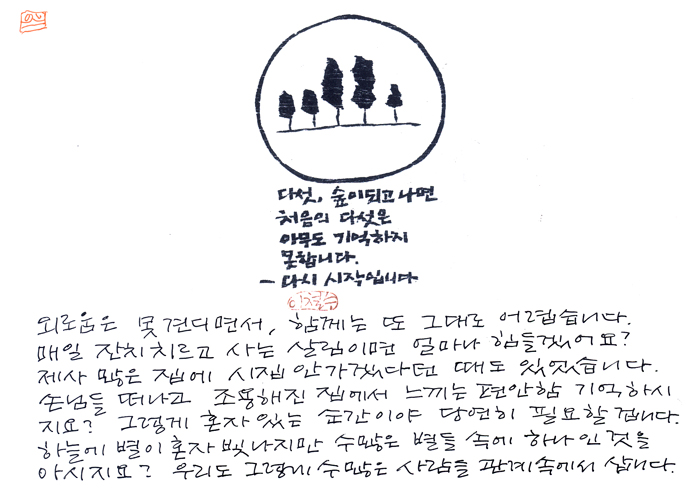 다섯, 숲이되고나면
처음의 다섯은
아무도 기억하지
못합니다.
- 다시 시작입니다
이철수
외로움은 못견디면서, 함께는 또 그대로 어렵습니다.
매일 잔치치르고 사는 살림이면 얼마나 힘들겠어요?
제사 많은 집에 시집안가겠다던 때도 있었습니다.
손님들 떠나고 조용해진 집에서 느끼는 편안함 기억하시
지요? 그렇게 혼자 있는 순간이야 당연히 필요할겁니다.
하늘에 별이 혼자 빛나지만 수많은 별들 속에 하나인것을
아시지요? 우리도 그렇게 수많은 사람들 관계속에서 삽니다.